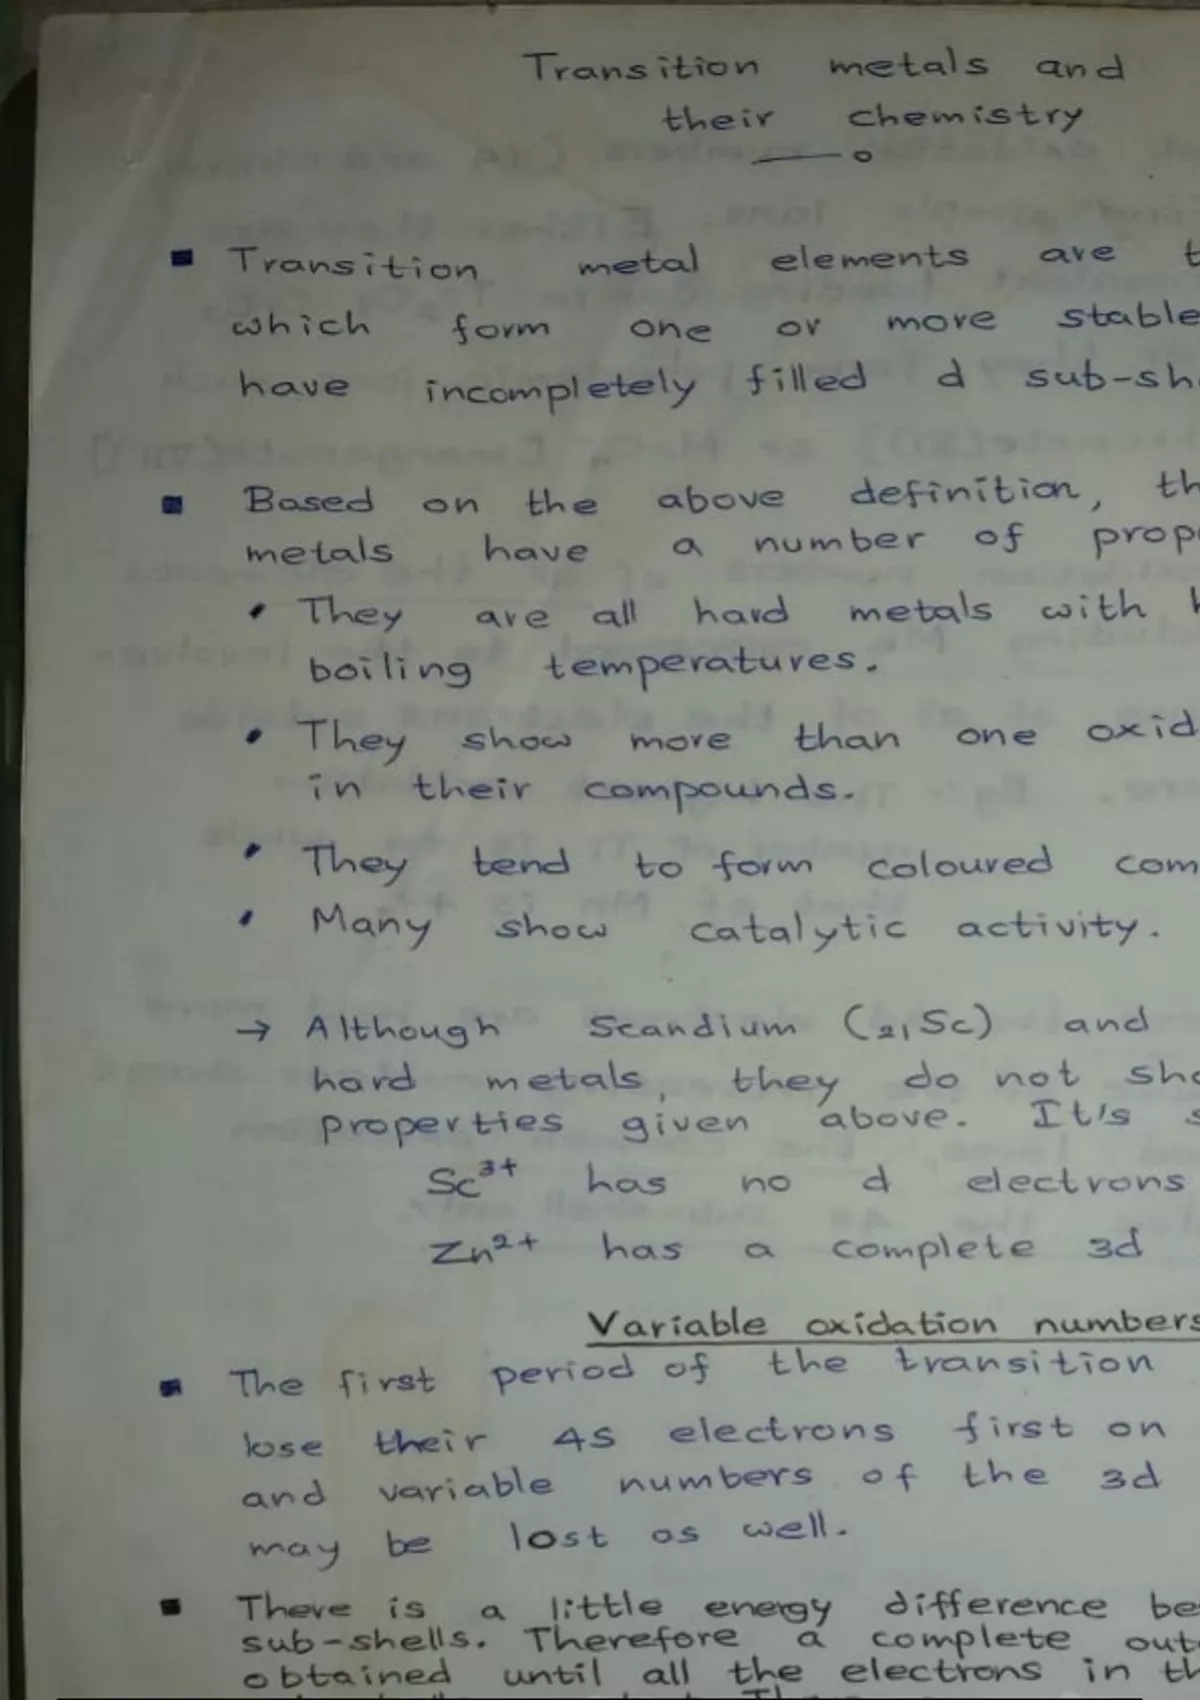 Transition metals and
their chemistry
▪ Transition metal elements are t
which form one or more stable
have incompletely filled d sub-sh
▪ Based on the above definition, th
metals have a number of prop
• They are all hard metals with h
boiling temperatures.
• They show more than one oxid
in their compounds.
• They tend to form coloured com
• Many show catalytic activity.
→ Although Scandium (₂₁Sc) and
hard metals, they do not sho
properties given above. It's s
Sc³⁺ has no d electrons
Zn²⁺ has a complete 3d
Variable oxidation numbers
▪ The first period of the transition
lose their 4s electrons first on
and variable numbers of the 3d
may be lost as well.
▪ There is a little energy difference be
sub-shells. Therefore a complete out
obtained until all the electrons in th